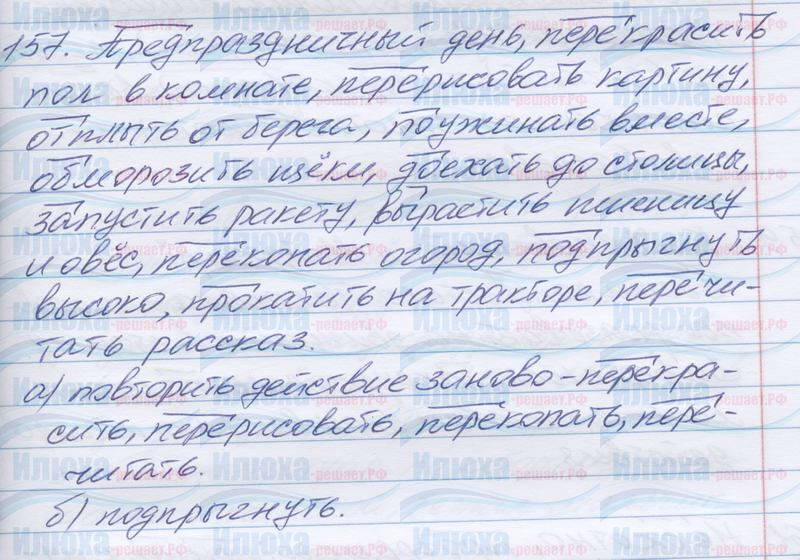 157. Предпраздничный день, перекрасить
пол в комнате, перерисовать картину,
отплыть от берега, поужинать вместе,
обморозить щёки, доехать до столицы,
запустить ракету, вырастить пшеницу
и овёс, перекопать огород, подпрыгнуть
высоко, прокатить на тракторе, перечи-
тать рассказ.
а) повторить действие заново - перекра-
сить, перерисовать, перекопать, пере-
читать.
б) подпрыгнуть.